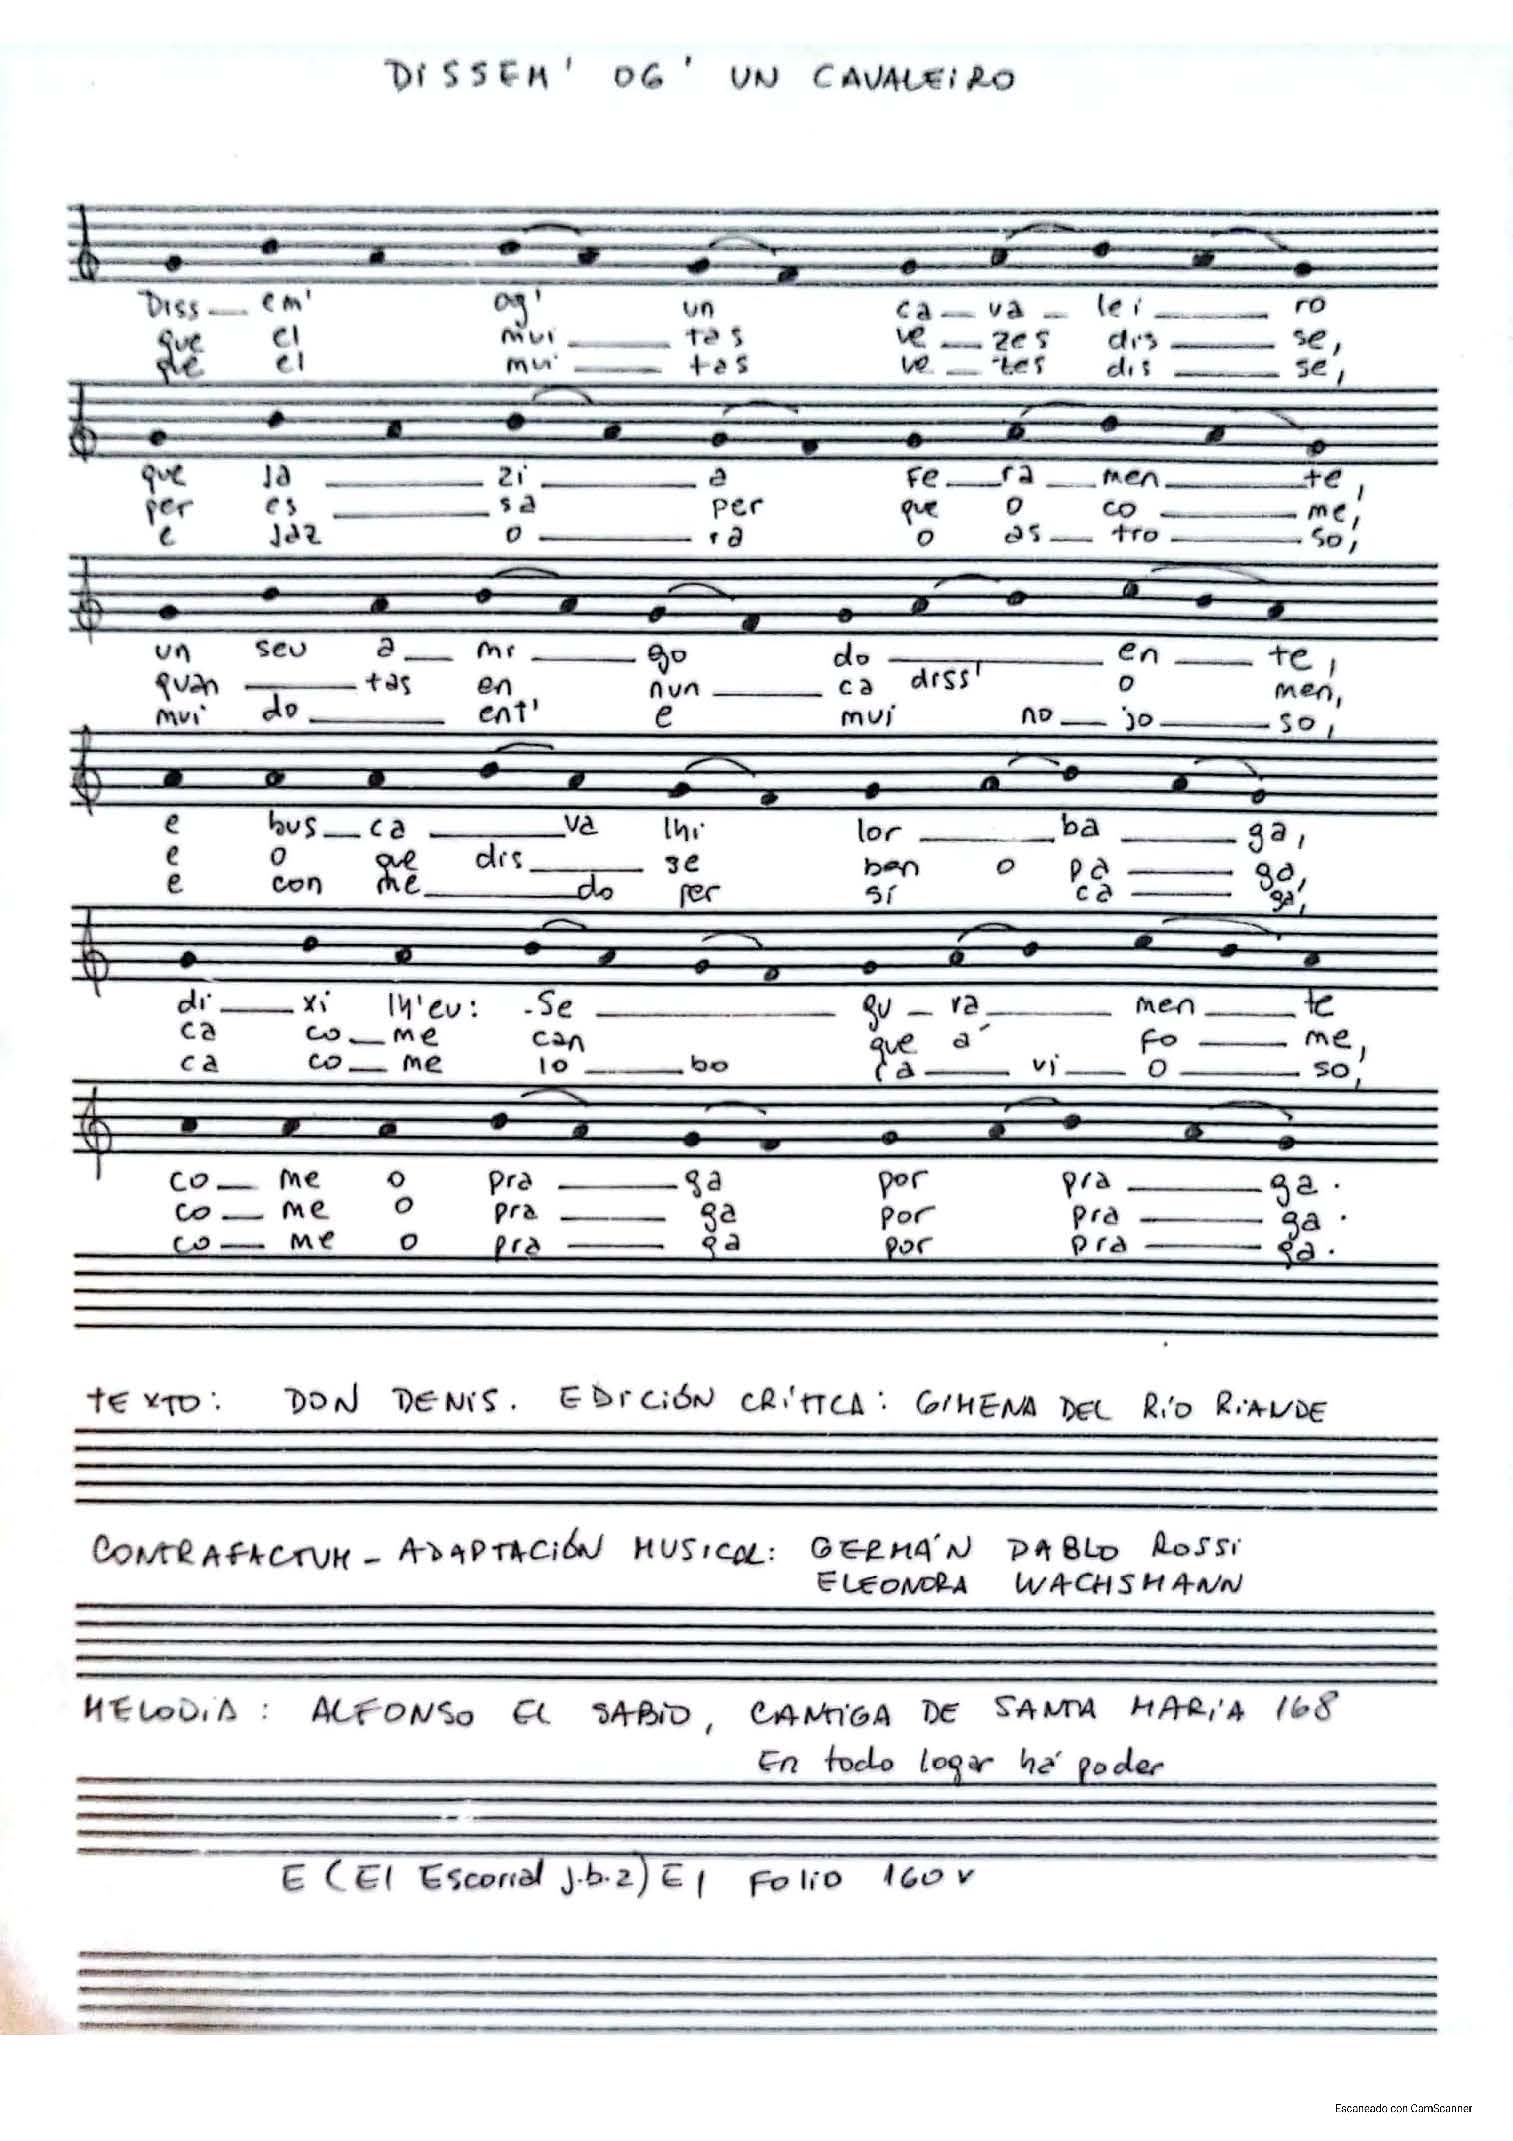 DISSEM' OG' UN CAVALEIRO
Diss__em' og' un ca_va_lei____ro
que el mui____tas ve__zes dis____se,
que el mui____tas ve_zes dis____se,
que ja____zi____a fe__ra__men____te,
per es____sa per que o co____me,
e jaz o____ra o as__tro____so,
un seu a__mi____go do____en___te,
quan____tas en nun___ca diss' o men,
mui do____ent' e mui no__jo____so,
e bus__ca____va lhi lor____ba____ga,
e o que dis____se ben o pa____ga,
e con me____do per si ca____ga,
di___xi lh'eu: -Se____gu_ra____men___te
ca co__me can que á fo____me,
ca co__me lo___bo ra___vi__o____so,
co__me o pra____ga por pra____ga.
co__me o pra____ga por pra____ga.
co__me o pra____ga por pra____ga.
TEXTO: DON DENIS. EDICIÓN CRÍTICA: GIMENA DEL RÍO RIANDE
CONTRAFACTUM - ADAPTACIÓN MUSICAL: GERMÁN PABLO ROSSI
ELEONORA WACHSMANN
MELODÍA: ALFONSO EL SABIO, CANTIGA DE SANTA MARÍA 168
En todo logar há poder
E (El Escorial j.b.2) E1 Folio 160v
Escaneado con CamScanner